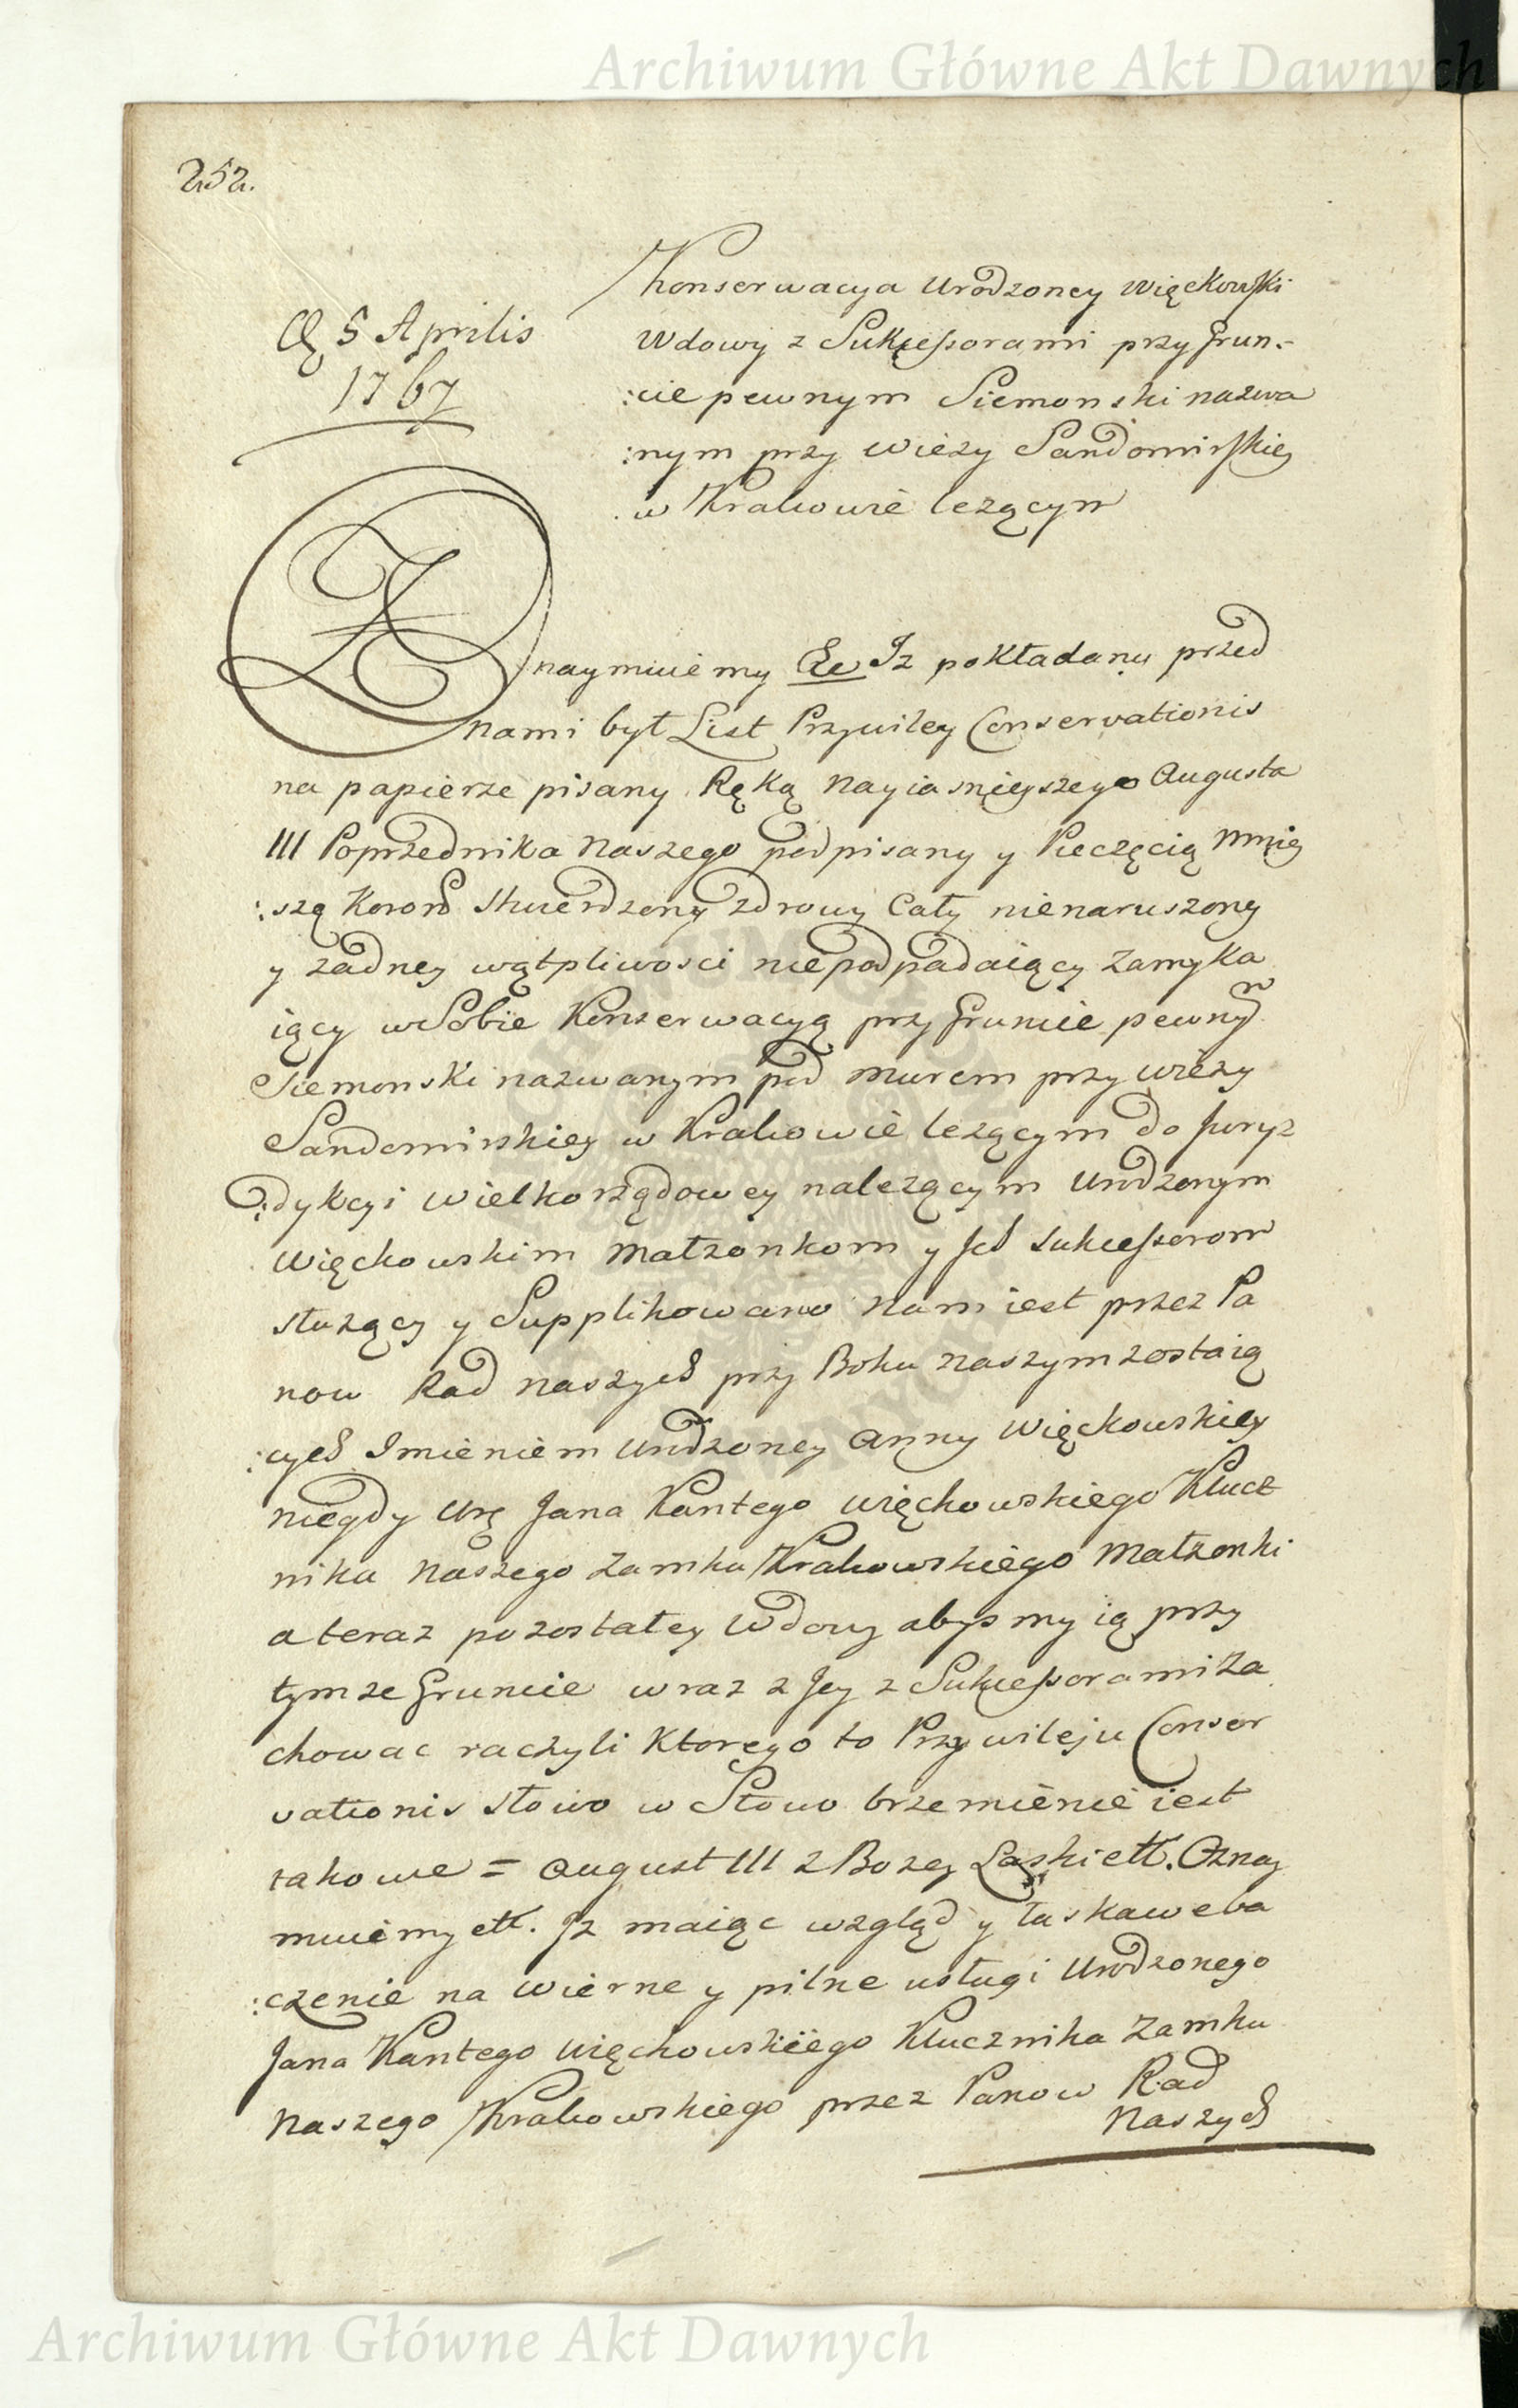 Archiwum Główne Akt Dawnych
252.
5 Aprilis
1767
Konserwacya Urodzoney Więckowski
Wdowy z Sukcessorami przy Grun-
:cie pewnym Siemonski nazwa
:nym przy Wieży Sandomirskiey
w Krakowie leżącym
Znaymuiemy Iz pokładany przed
nami był List Przywiley Conservationis
na papierze pisany Ręką Nayiasnieyszego Augusta
III Poprzednika Naszego podpisany y Pieczęcią Mniey
:szą Koron stwierdzony zdrowy Cały nienaruszony
y żadney wątpliwosci niepodpadaiący Zamyka
iący w Sobie Konserwacyą przy Gruncie pewnym
Siemonski nazwanym pod murem przy wieży
Sandomirskiey w Krakowie leżącym do Juryz
:dykcyi Wielkorządowey należącym Urodzonym
Więckowskim Małżonkom y Ich Sukcessorom
służący y Supplikowano Nam iest przez Pa
now Rad Naszych przy Boku Naszym zostaią
:cych Imieniem Urodzoney Anny Więckowskiey
niegdy Ur. Jana Kantego Więckowskiego Klucz
nika Naszego Zamku Krakowskiego Małżonki
a teraz pozostałey Wdowy abysmy ią przy
tymze Gruncie wraz z Jey z Sukcessorami Za
chowac raczyli Ktorego to Przywileju Conser
vationis słowo w Słowo brzemienie iest
takowe = August III z Bożey Łaski ett. Oznay
muiemy ett. Iz maiąc wzgląd y łaskawe ba
:czenie na Wierne y pilne usługi Urodzonego
Jana Kantego Więckowskiego Klucznika Zamku
Naszego Krakowskiego przez Panow Rad
Naszych
Archiwum Główne Akt Dawnych